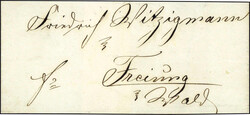 Friedrich Witzigmann
z
No Freiung
z Wald